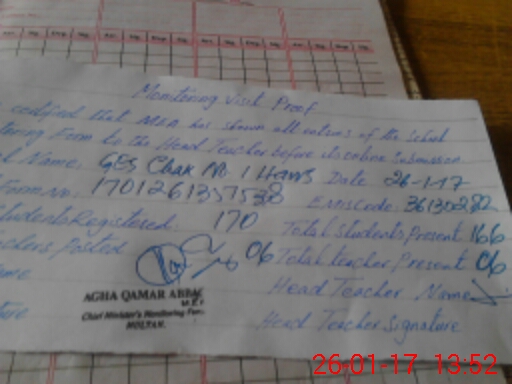 Monitoring Visit Proof
certified that MEA has shown all entries of the School
Form to the Head Teacher before its online Submission
Name. GES Chak No 1 Haws Date 26-1-17
Form No. 17012613575 Emiscode. 36130282
Students Registered. 170 Total students Present 166
Teachers Posted 06 Total teacher Present 06
Name Head Teacher Name
AGHA QAMAR ABBAS
Chief Minister's Monitoring
MULTAN.
Head Teacher Signature
26-01-17 13:52